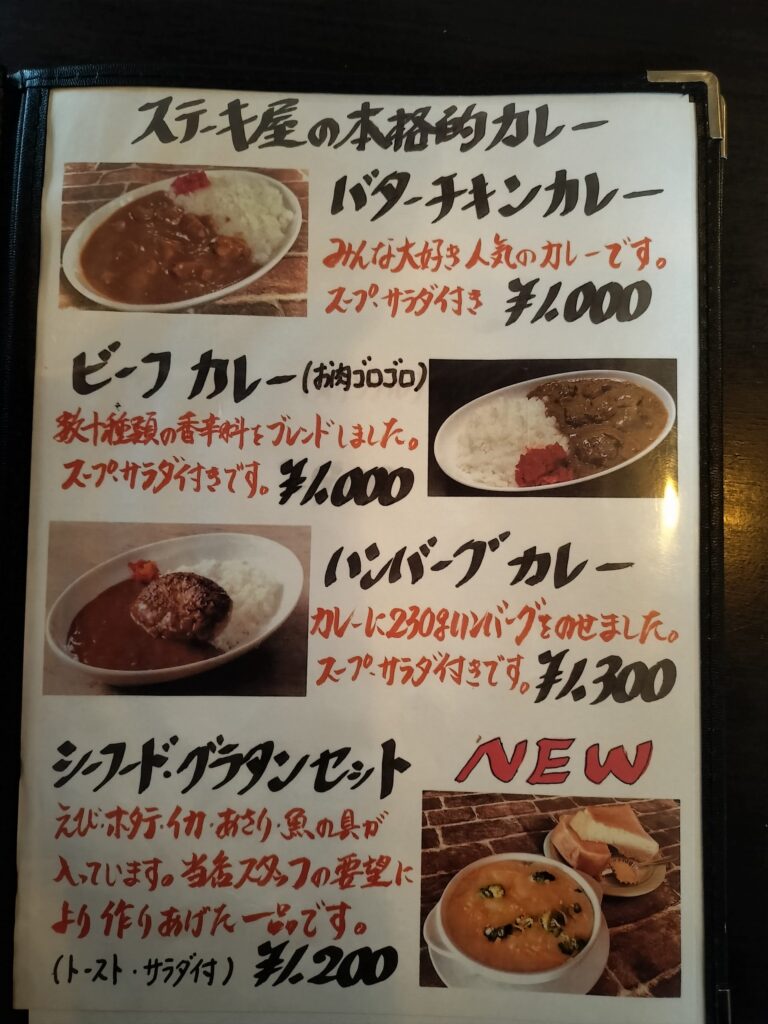 ステーキ屋の本格的カレー
バターチキンカレー
みんな大好き人気のカレーです。
スープ・サラダ付き ¥1.000
ビーフ カレー(お肉ゴロゴロ)
数十種類の香辛料をブレンドしました。
スープ・サラダ付きです。¥1.000
ハンバーグ カレー
カレーに230gハンバーグをのせました。
スープ・サラダ付きです。¥1.300
シーフード・グラタンセット NEW
えび・ホタテ・イカ・あさり・魚の具が
入っています。当店スタッフの要望に
より作りあげた一品です。
(トースト・サラダ付) ¥1.200